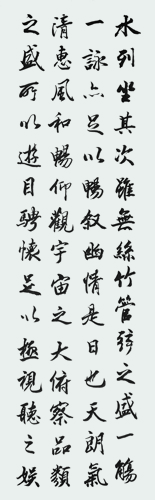 水列坐其次雖無絲竹管弦之盛一觴
一詠亦足以暢叙幽情是日也天朗氣
清惠風和暢仰觀宇宙之大俯察品類
之盛所以遊目騁懷足以極視聽之娛